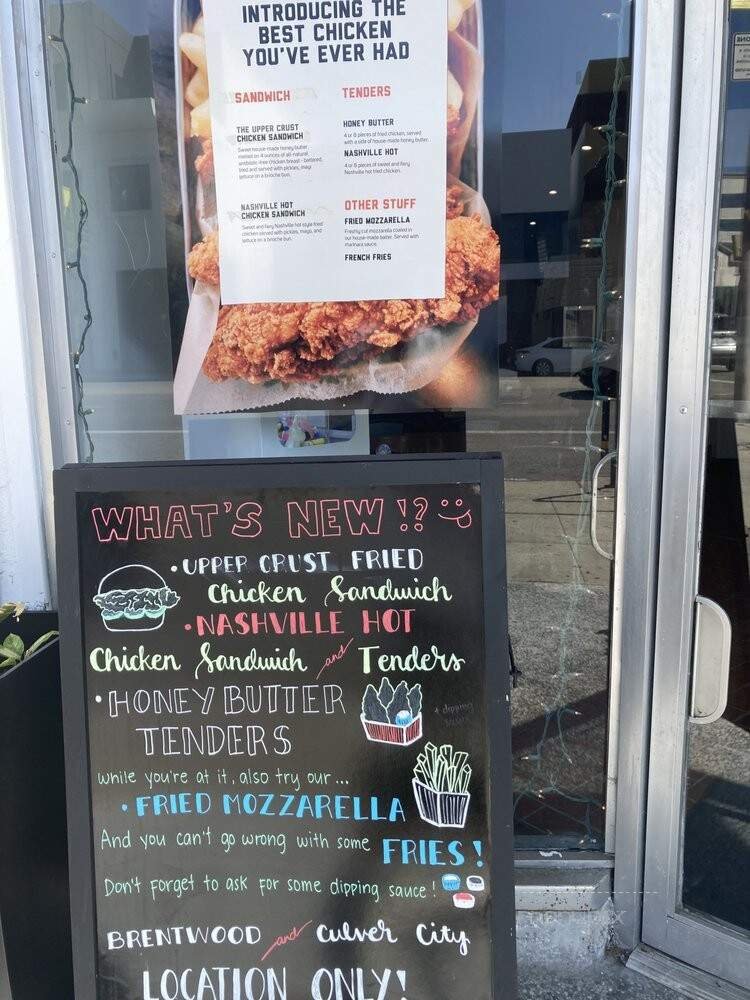 INTRODUCING THE
BEST CHICKEN
YOU'VE EVER HAD
SANDWICH
THE UPPER CRUST
CHICKEN SANDWICH
Sweet house-made honey butter
melted on 4 ounces of all-natural,
antibiotic-free chicken breast - battered,
fried and served with pickles, mayo
lettuce on a brioche bun.
NASHVILLE HOT
CHICKEN SANDWICH
Sweet and fiery Nashville hot style fried
chicken served with pickles, mayo, and
lettuce on a brioche bun.
TENDERS
HONEY BUTTER
4 or 8 pieces of fried chicken, served
with a side of house-made honey butter.
NASHVILLE HOT
4 or 8 pieces of sweet and fiery
Nashville hot fried chicken.
OTHER STUFF
FRIED MOZZARELLA
Freshly cut mozzarella coated in
our house-made batter. Served with
marinara sauce.
FRENCH FRIES
WHAT'S NEW !?
• UPPER CRUST FRIED
Chicken Sandwich
• NASHVILLE HOT
Chicken Sandwich and Tenders
• HONEY BUTTER
TENDERS
+ dipping
sauces
while you're at it, also try our ...
• FRIED MOZZARELLA
And you can't go wrong with some FRIES!
Don't forget to ask for some dipping sauce!
BRENTWOOD and Culver City
LOCATION ONLY!